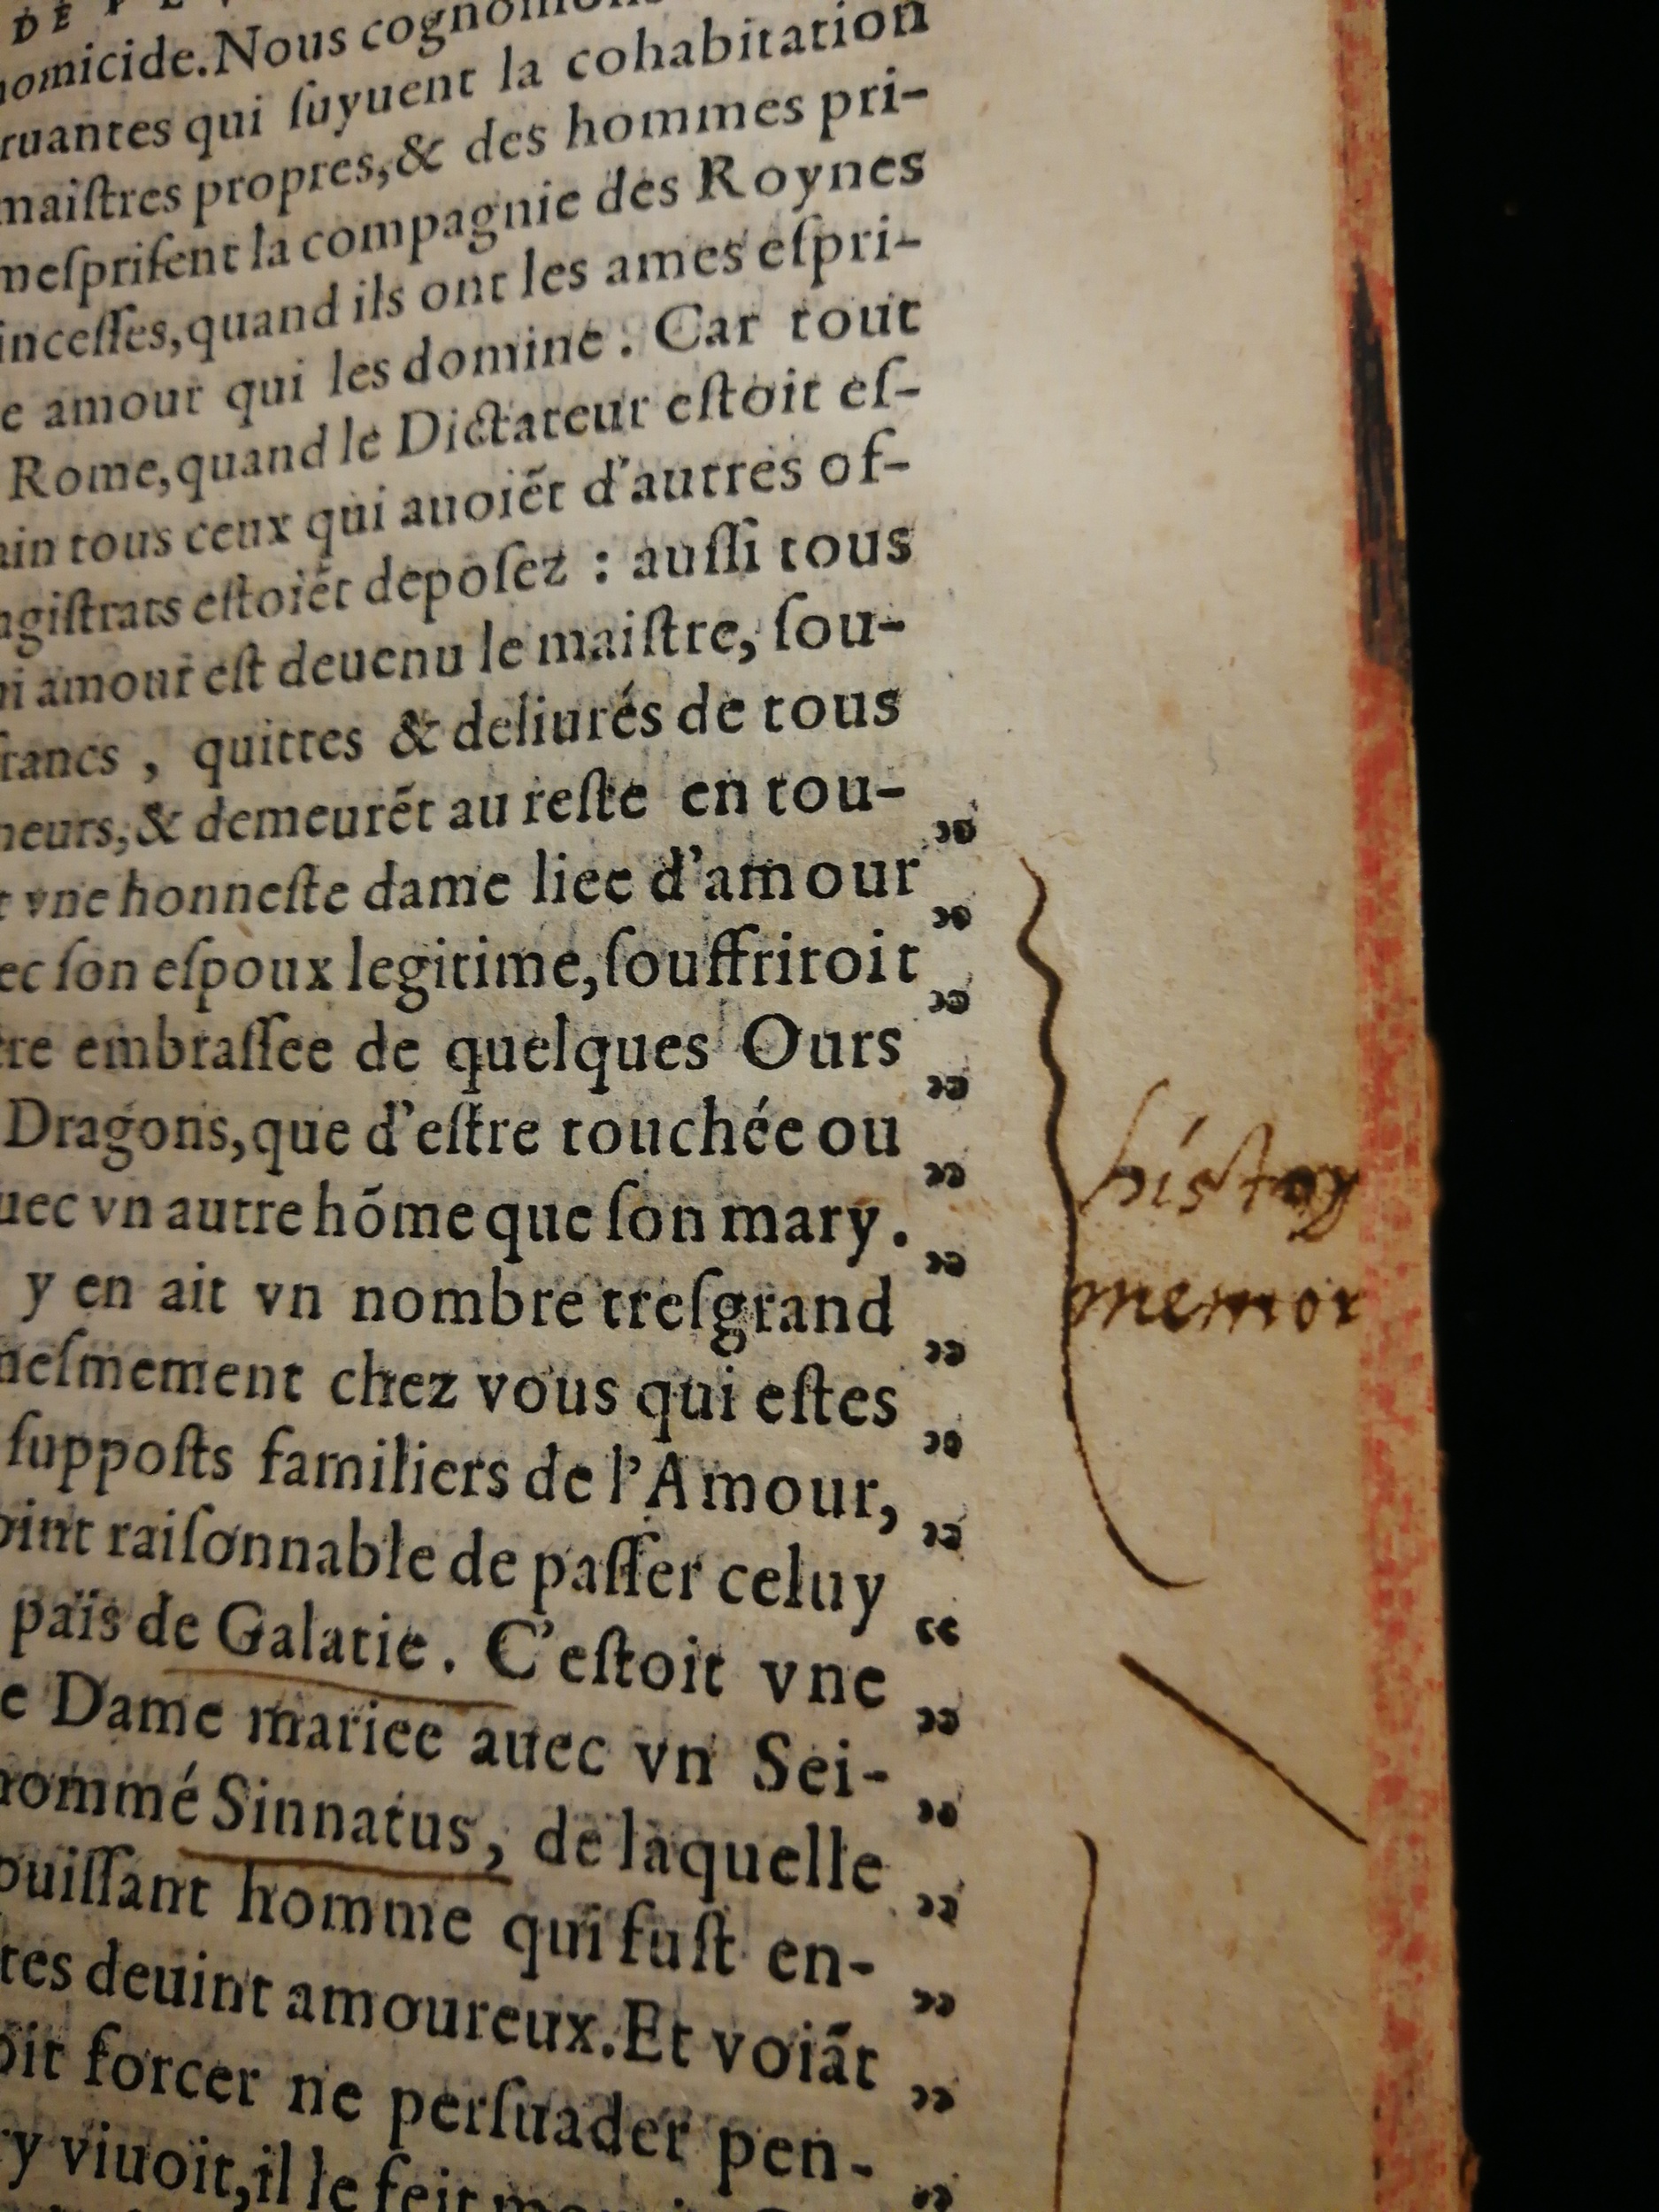 DE
omicide.Nous cognoi
ruantes qui ſuyuent la cohabitation
maiſtres propres,& des hommes pri-
meſpriſent la compagnie des Roynes
inceſſes,quand ils ont les ames eſpri-
e amour qui les domine. Car tout
Rome,quand le Dictateur eſtoit eſ-
ain tous ceux qui auoiẽt d'autres of-
agiſtrats eſtoiẽt depoſez : auſſi tous
ui amour eſt deuenu le maiſtre, ſou-
francs , quittes & deliurés de tous
neurs,& demeurẽt au reſte en tou-
t vne honneſte dame liee d'amour ”
ec ſon eſpoux legitime,ſouffriroit ”
re embraſſee de quelques Ours ”
Dragons,que d'eſtre touchée ou ”
uec vn autre hõme que ſon mary. ”
y en ait vn nombre treſgrand ”
neſmement chez vous qui eſtes ”
ſuppoſts familiers de l'Amour, ”
oint raiſonnable de paſſer celuy ”
païs de Galatie. C'eſtoit vne “
e Dame mariee auec vn Sei- ”
nommé Sinnatus, de laquelle ”
ouiſſant homme qui fuſt en- ”
tes deuint amoureux.Et voiãt ”
oit forcer ne perſuader pen- ”
y viuoit,il le feit ”
memor